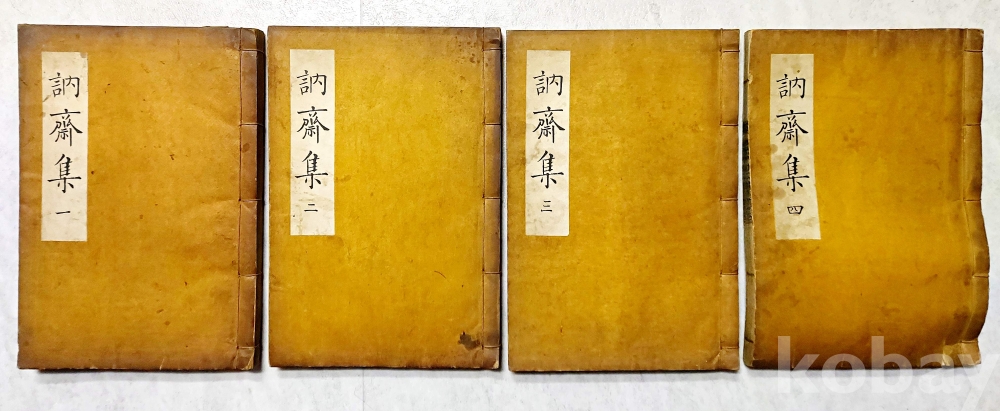 訥齋集 一
訥齋集 二
訥齋集 三
訥齋集 四
kobay